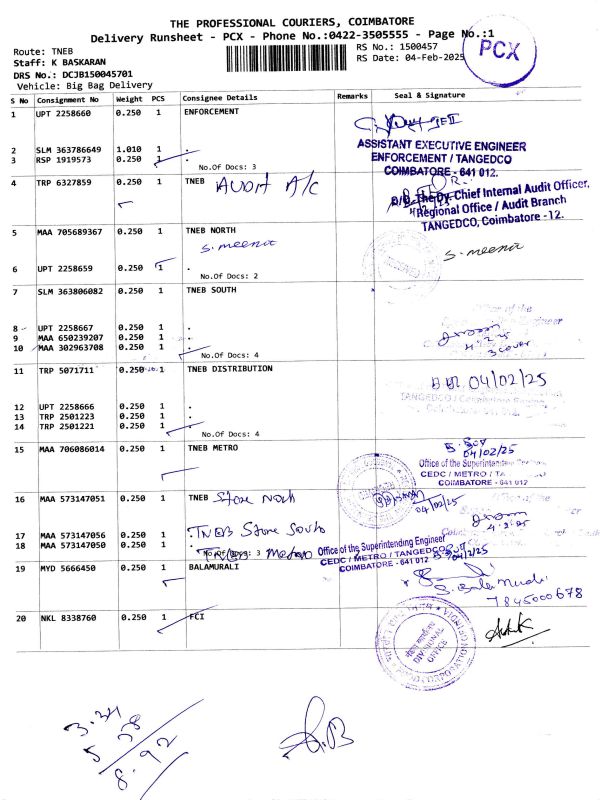 THE PROFESSIONAL COURIERS, COIMBATORE
Delivery Runsheet - PCX - Phone No.:0422-3505555 - Page No.:1
PCX
Route: TNEB
RS No.: 1500457
Staff: K BASKARAN
RS Date: 04-Feb-2025
DRS No.: DCJB150045701
Vehicle: Big Bag Delivery
S No Consignment No Weight PCS Consignee Details Remarks Seal & Signature
1 UPT 2258660 0.250 1 ENFORCEMENT
2 SLM 363786649 1.010 1 .
3 RSP 1919573 0.250 1 .
No.Of Docs: 3
ASSISTANT EXECUTIVE ENGINEER
ENFORCEMENT / TANGEDCO
COIMBATORE - 641 012.
4 TRP 6327859 0.250 1 TNEB AUDIT A/C
O/o. The Dy. Chief Internal Audit Officer,
Regional Office / Audit Branch
TANGEDCO, Coimbatore -12.
5 MAA 705689367 0.250 1 TNEB NORTH
S. meena
S. meena
6 UPT 2258659 0.250 1 .
No.Of Docs: 2
7 SLM 363806082 0.250 1 TNEB SOUTH
Office of the
Engineer
8 UPT 2258667 0.250 1 .
9 MAA 650239207 0.250 1 .
10 MAA 302963708 0.250 1 .
No.Of Docs: 4
4.2.25
3 cover
11 TRP 5071711 0.250 1 TNEB DISTRIBUTION
04/02/25
12 UPT 2258666 0.250 1 .
13 TRP 2501223 0.250 1 .
14 TRP 2501221 0.250 1 .
No.Of Docs: 4
15 MAA 706086014 0.250 1 TNEB METRO
04/02/25
Office of the Superintending Engineer
CEDC / METRO / TA
COIMBATORE - 641 012
16 MAA 573147051 0.250 1 TNEB Store North
04/02/25
Office of the
4.2.25
17 MAA 573147056 0.250 1 . TNEB Store South
18 MAA 573147050 0.250 1 . TNEB Metro
No.Of Docs: 3
Office of the Superintending Engineer
CEDC / METRO / TANGEDCO
COIMBATORE - 641 012
04/2/25
19 MYD 5666450 0.250 1 BALAMURALI
S. Bala Murali
7845000678
20 NKL 8338760 0.250 1 FCI
DIVISIONAL
OFFICE
FOOD CORPORATION
3.34
5 58
8.92